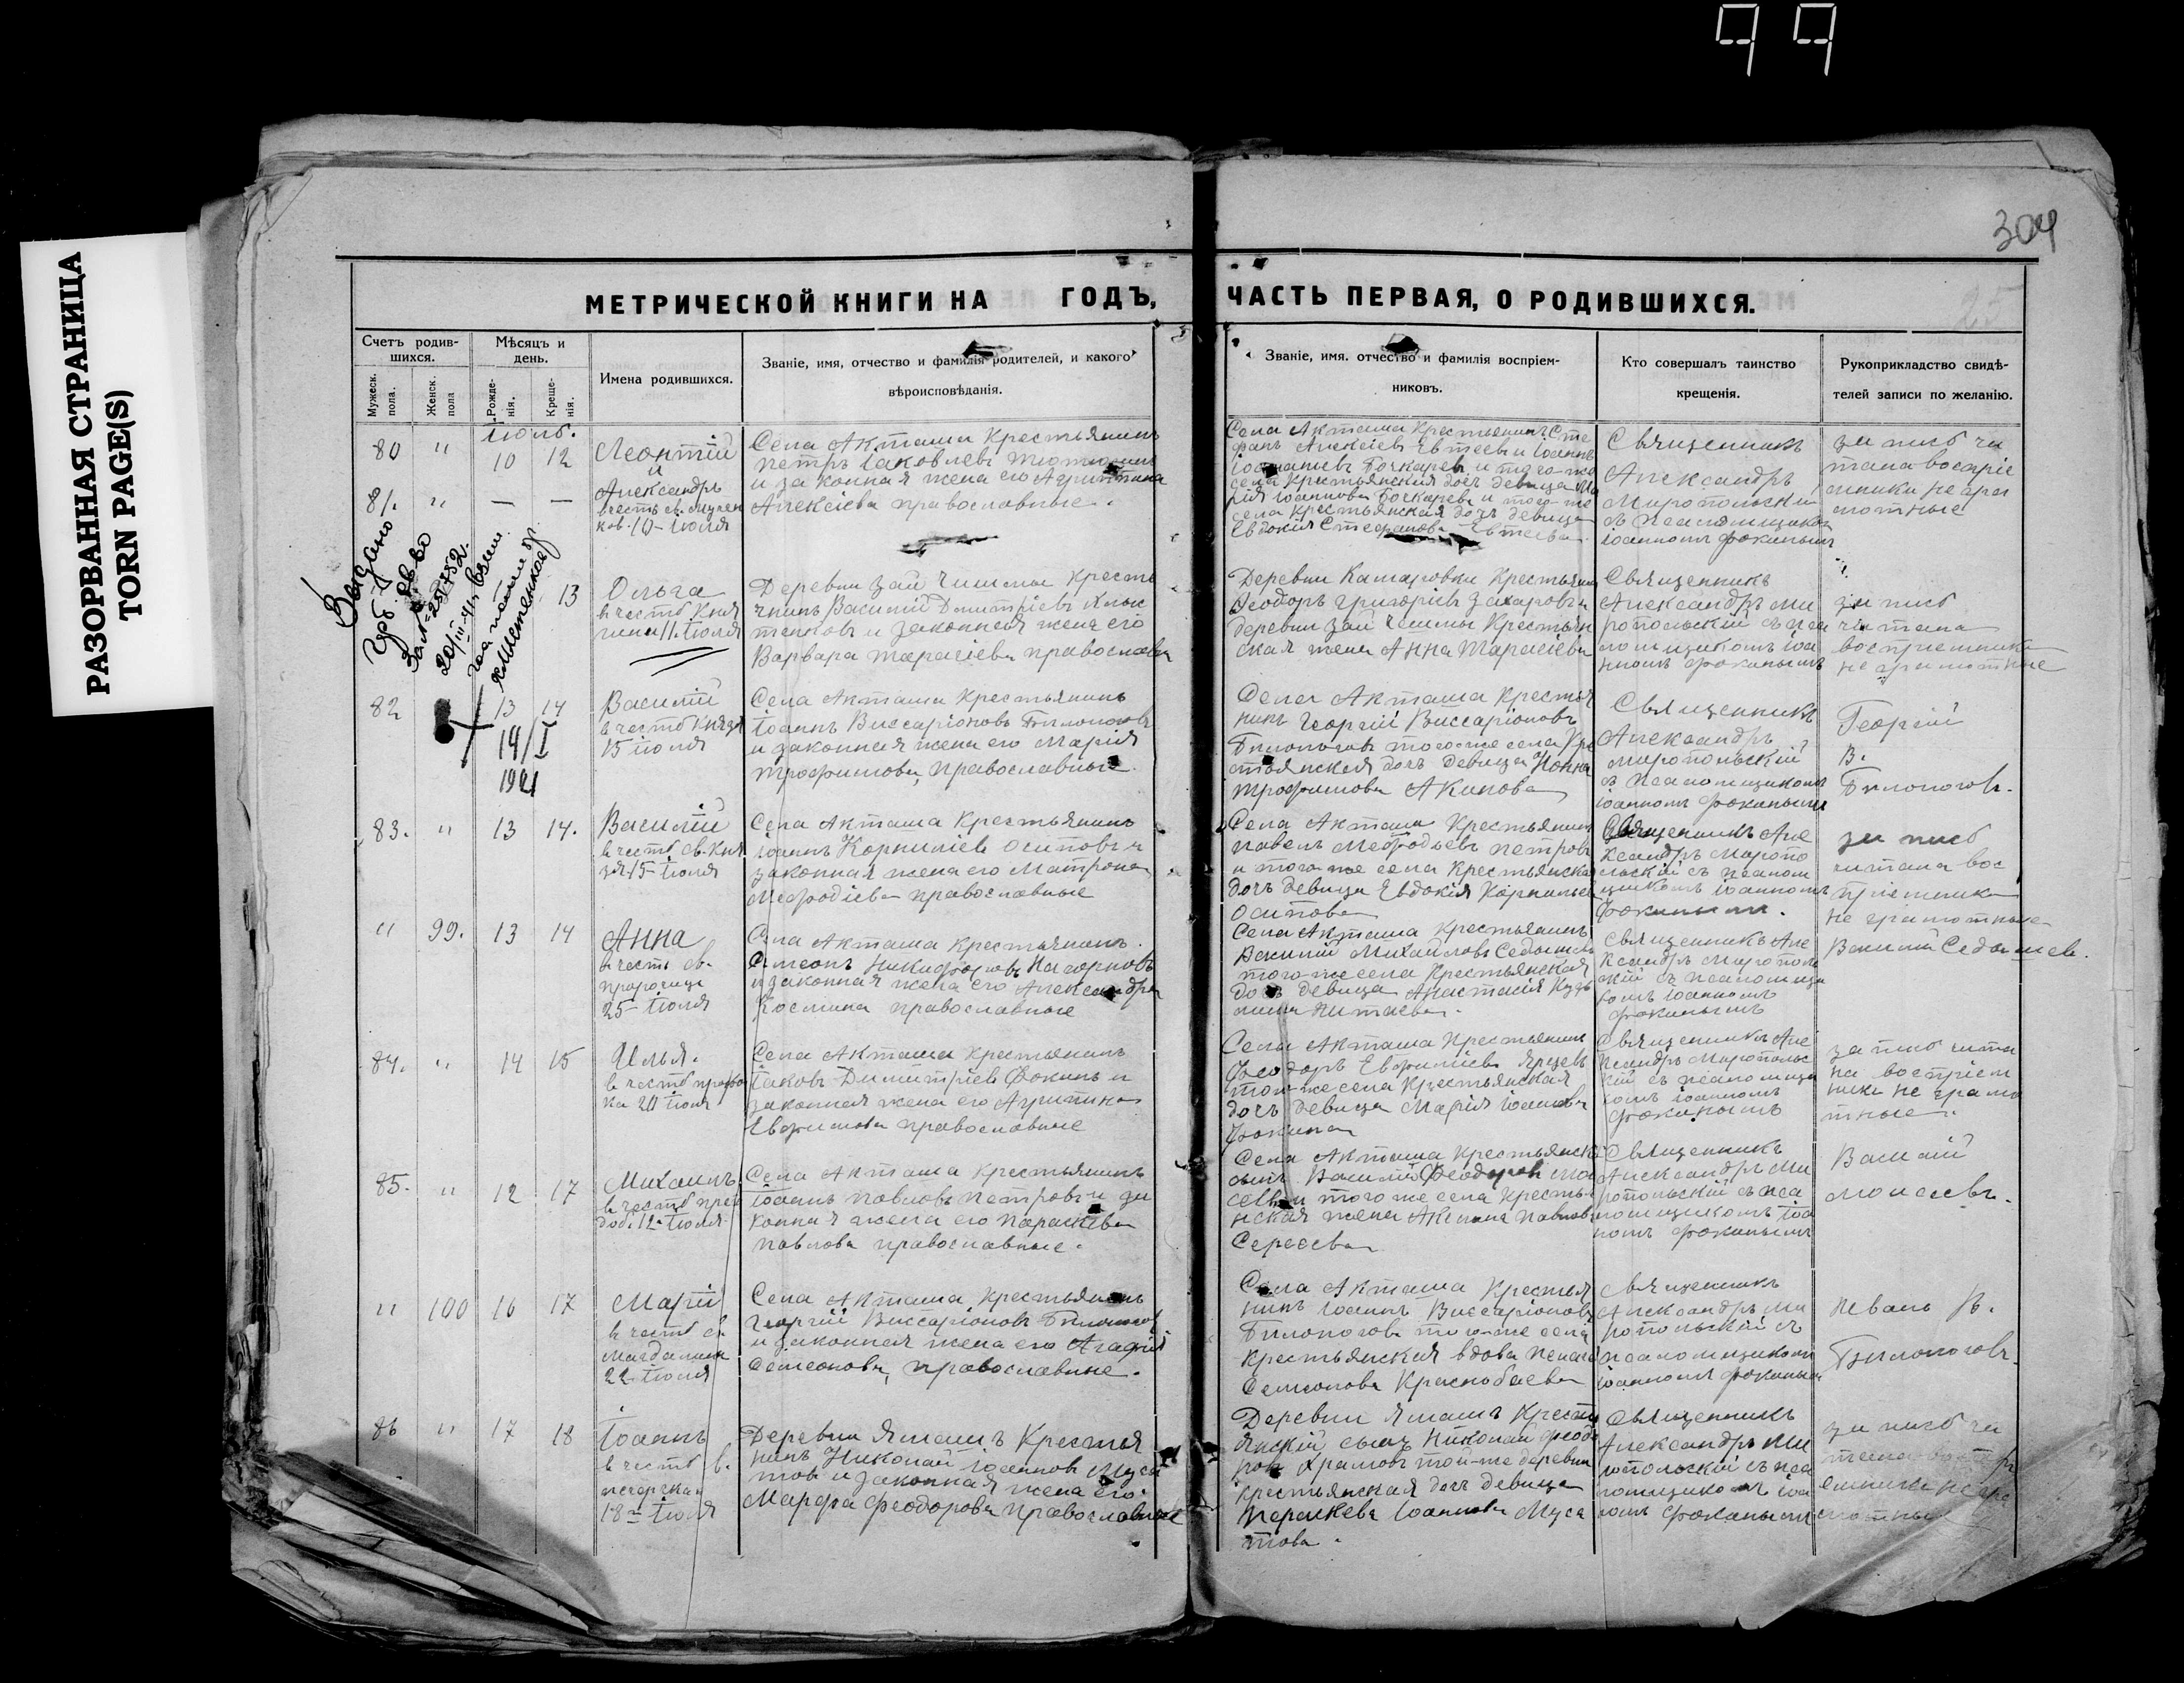 99
РАЗОРВАННАЯ СТРАНИЦА
TORN PAGE(S)
304
25
МЕТРИЧЕСКОЙ КНИГИ НА ГОДЪ, ЧАСТЬ ПЕРВАЯ, О РОДИВШИХСЯ.
Счетъ родив-
шихся.
Мужеск. пола.
Женск. пола
Мѣсяцъ и
день.
Рожде-
нія.
Креще-
нія.
Имена родившихся.
Званіе, имя, отчество и фамилія родителей, и какого
вѣроисповѣданія.
Званіе, имя. отчество и фамилія воспріем-
никовъ.
Кто совершалъ таинство
крещенія.
Рукоприкладство свидѣ-
телей записи по желанію.
Июль.
80 " 10 12
81. " — —
Леонтій
и
Александръ
в честь св. Мучен
ков 10 Июля
Села Акташа Крестьянинъ
Петръ Іаковлевъ
и законная жена его Агриппина
Алексіева православные.
Села Акташа Крестьянинъ Сте
фанъ Алексіевъ Евтеевъ и Іоаннъ
Бочкаревъ и того-же
села Крестьянская дочь девица Ма
рія Іоаннова Бочкарева и того-же
села Крестьянская дочь девица
Евдокія Стефанова Евтеева
Священникъ
Александръ
Миропольскій
съ Псаломщикомъ
Іоанномъ Фокинымъ
запись чи
тана воспріе
мники негра
мотные
Выдано
13
Ольга
в честь Кня
гини 11 Июля
Деревни Зай Чишмы Кресть
янинъ Василий Дмитріевъ
и законная жена его
Варвара Тарасіева православн
Деревни Крестьянин
Феодоръ Григоріевъ Захаровъ и
деревни Зай Чишмы Крестьян
ская жена Анна Тарасіева
Священникъ
Александръ Ми
ропольскій съ пса
ломщикомъ Іоа
нномъ Фокинымъ
запись
читана
восприемники
не грамотные
82 13 14
14/I
1921
Василій
в честь Князя
15 Июля
Села Акташа Крестьянинъ
Іоаннъ Виссаріоновъ Билоногов
и законная жена его Марія
Трофимова, Православные.
Села Акташа Крестья
нинъ Георгій Виссаріоновъ
Билоноговъ того-же села Кре
стьянская дочь девица
Трофимова Акинова
Священникъ
Александръ
Миропольскій
съ Псаломщикомъ
Іоанномъ Фокинымъ
Георгій
В.
Билоноговъ.
83. " 13 14.
Василій
в честь св. Кня
зя 15 Июля
Села Акташа Крестьянинъ
Іоаннъ Корниліевъ Осиповъ и
законная жена его Матрона
Мефодіева православные
Села Акташа Крестьянинъ
Павелъ Мефодьевъ Петровъ
и того же села Крестьянска
дочь девица Евдокія Корнильев
Осипова
Священникъ Але
ксандръ Миропо
льскій съ псалом
щикомъ Іоанномъ
Фокинымъ.
запись
читана вос
приемники
не грамотные
" 99. 13 14
Анна
в честь св.
пророчицы
25 Июля
Села Акташа Крестьянинъ
Симеонъ Никифоровъ Нагорновъ
и законная жена его Александра
Космина православные
Села Акташа Крестьянинъ
Василій Михайловъ Седышев
того-же села Крестьянская
дочь девица Анастасія Кузь
мина
Священникъ Але
ксандръ Мирополь
скій съ псаломщи
комъ Іоанномъ
Фокинымъ
Василий Седышев.
84. " 14 15
Илья.
в честь проро
ка 20 Июля
Села Акташа Крестьянинъ
Іаковъ Димитріевъ Фокинъ и
законная жена его Агрипина
Евфимова православные
Села Акташа Крестьянинъ
Феодоръ Евфиміевъ Ярцевъ
той-же села Крестьянская
дочь девица Марія Іоанова
Фокина
Священникъ Але
ксандръ Миропольс
кій съ псаломщи
комъ Іоанномъ
Фокинымъ
запись чита
на воспріем
ники не грамо
тные.
85. " 12 17
Михаилъ
в честь преп
доб. 12 Июля
Села Акташа Крестьянинъ
Іоаннъ Павловъ Петровъ и за
конная жена его Параскева
Павлова православные.
Села Акташа Крестьянск
сынъ Василій Феодоровъ Мои
сеевъ и того же села Крестья
нская жена Павлова
Сергеева
Священникъ
Александръ Ми
ропольскій съ пса
ломщикомъ Іоа
номъ Фокинымъ
Василій
Моисеевъ.
" 100 16 17
Марія
в честь св
Магдалины
22 Июля
Села Акташа, Крестьянинъ
Георгій Виссаріоновъ Билоногов
и законная жена его Агафія
Семеонова, православные.
Села Акташа Крестья
нинъ Іоаннъ Виссаріоновъ
Билоногова того-же села
Крестьянская вдова Пелаге
Семионова Краснобаева
Священникъ
Александръ Ми
ропольскій съ
псаломщикомъ
Іоанномъ Фокинымъ
Иванъ В.
Билоноговъ.
86 " 17 18
Іоаннъ
в честь
18 Июля
Деревни Ямашъ Крестья
нинъ Николай Іоанновъ Муса
товъ и законная жена его
Марфа Феодорова Православные
Деревни Ямашъ Кресть
янскій сынъ Николай Феодо
ровъ Храмовъ той-же деревни
крестьянская дочь девица
Параскева Іоаннова Муса
това.
Священникъ
Александръ Ми
ропольскій съ пса
ломщикомъ Іоа
номъ Фокинымъ
запись чи